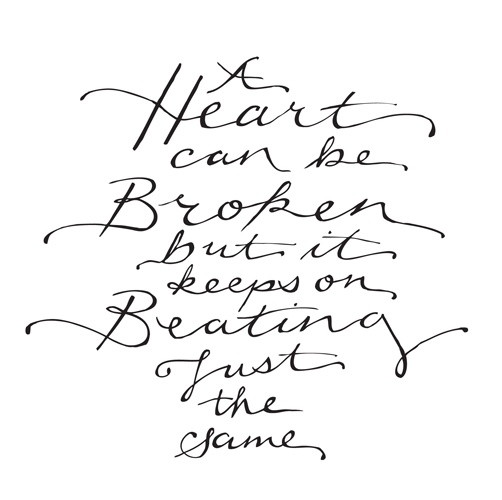 A
Heart
can be
Broken
but it
keeps on
Beating
Just
the
same